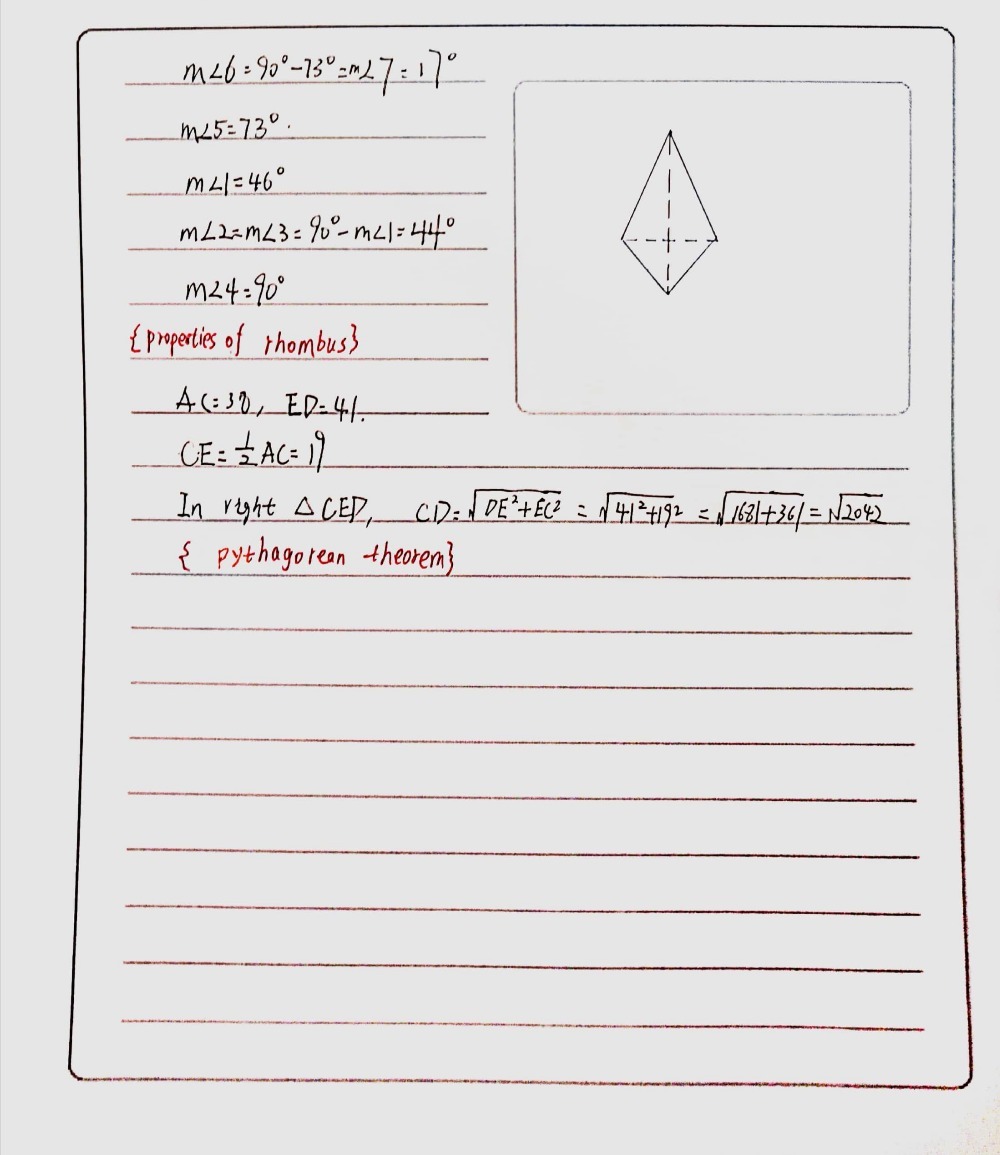 m∠6=90°-73°=m∠7=17°
m∠5=73°.
m∠1=46°
m∠2=m∠3=90°-m∠1=44°
m∠4=90°
{properties of rhombus}
AC=38, ED=41.
CE=½AC=19
In right △CED, CD=√DE²+EC² = √41²+19² = √1681+361 = √2042
{ pythagorean theorem}